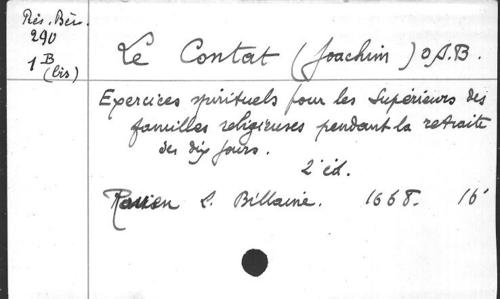 Rés. Bén.
290
1 B
(bis)
Le Contat (Joachim) O.S.B.
Exercices spirituels pour les Supérieurs des
familles religieuses pendant la retraite
des dix jours.
2e éd.
Rouen L. Billaine. 1668. 16°